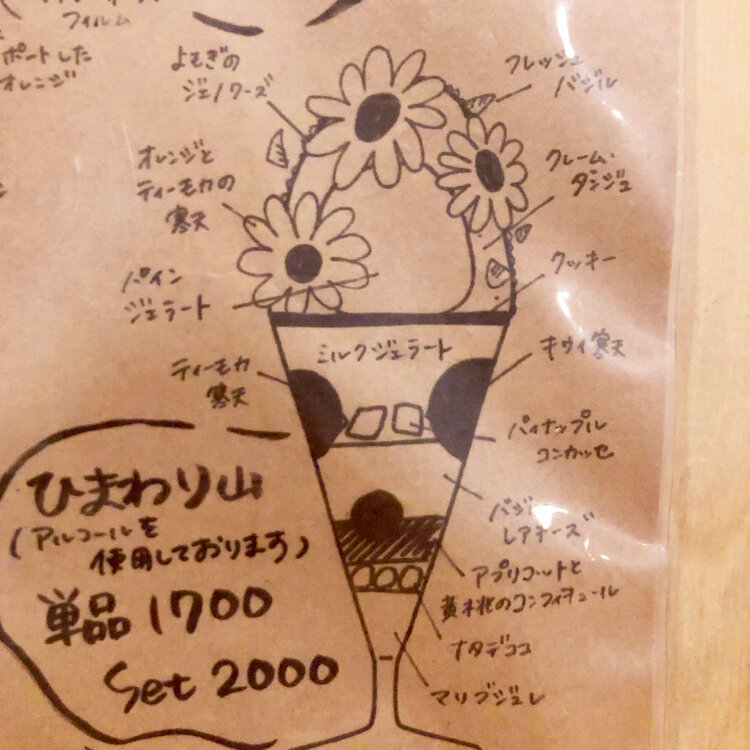 フィルム
ポートした
オレンジ
よもぎの
ジェノワーズ
フレッシュ
バジル
オレンジと
ティーモカの
寒天
クレーム・
ダンジュ
パイン
ジェラート
クッキー
ミルクジェラート
ティーモカ
寒天
キウイ寒天
パイナップル
コンカッセ
レアチーズ
アプリコットと
黄桃のコンフィチュール
ナタデココ
マリブジュレ
ひまわり山
(アルコールを
使用しております)
単品1700
Set 2000